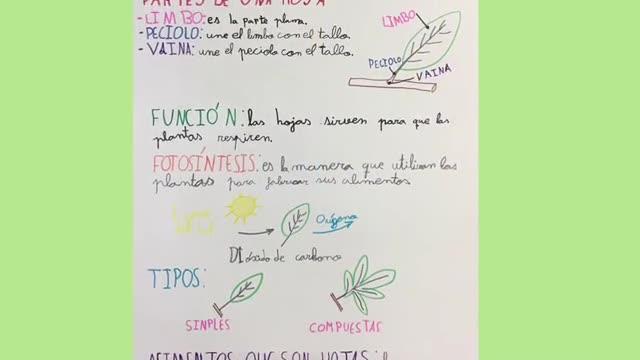 PARTES DE UNA HOJA
-LIMBO: es la parte plana.
-PECIOLO: une el limbo con el tallo.
-VAINA: une el peciolo con el tallo.
LIMBO
PECIOLO
VAINA
FUNCIÓN: las hojas sirven para que las
plantas respiren.
FOTOSÍNTESIS: es la manera que utilizan las
plantas para fabricar sus alimentos
Oxígeno
Dióxido de carbono
TIPOS:
SINPLES
COMPUESTAS
ALIMENTOS QUE SON HOJAS: